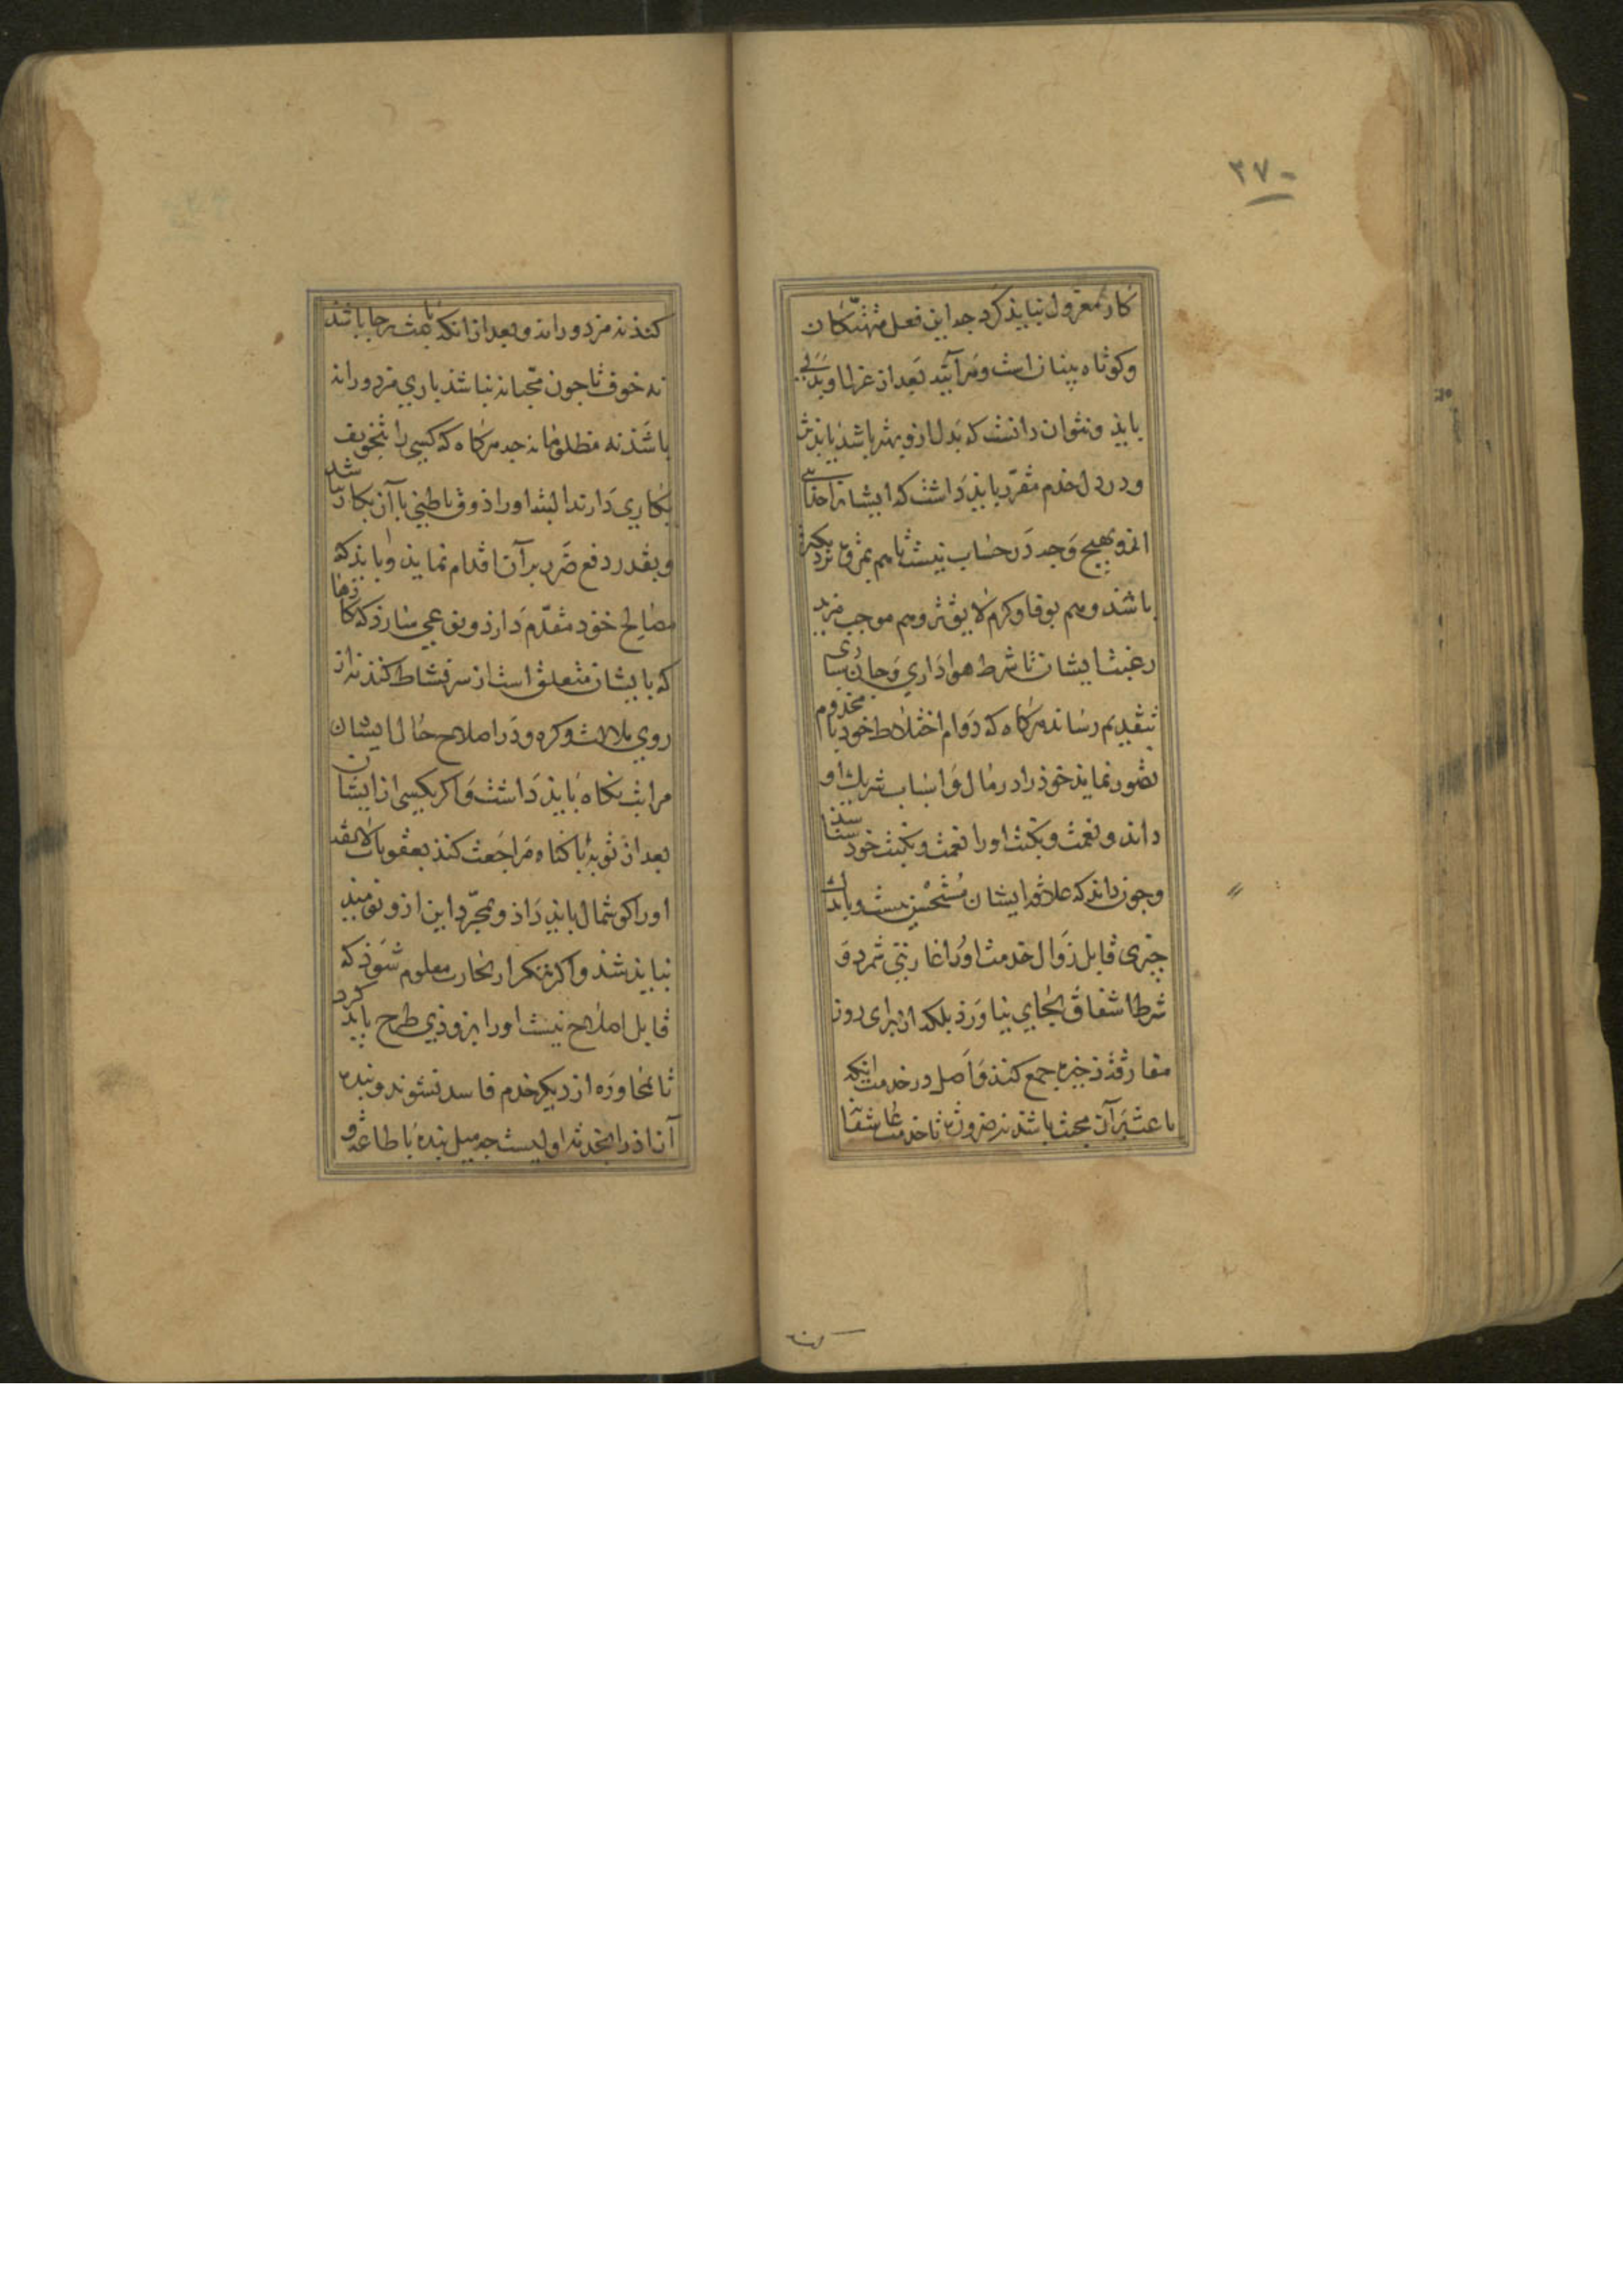 ۳۷۰
کار معزول نبایذ کرد جه این فعل متهتّکان
وکوتاه بینان است وهرآینه بعد از عزل او بدلی
بایذ ونتوان دانست که بدل ازو بهتر باشذ یا بدتر
ودر دل خدم مقرّر بایذ داشت که ایشانرا جذایی
ازو بهیچ وجه در حساب نیست تا هم بمروّت نزدیکتر
باشند وهم بوفا وکرم لایق‌تر وهم موجب مزید
رغبت ایشان تا شرط هواداری وجان سپاری
بتقدیم رسانند هرکاه که دوام اختلاط خود با مخدوم
تصور نمایند خوذ را در مال واسباب شریک او
دانند ونعمت ونکبت اورا نعمت ونکبت خوذ شناسند
وجون دانند که علاقه ایشان مستحسن نیست وباندک
چیزی قابل زوال خدمت اورا عاریتی شمرد و
شرط اشفاق بجای نیاورذ بلکه از برای روز
مفارقه ذخیره جمع کنند واصل در خدمت آنکه
باعث بر آن محبت باشذ نه ضرورت تا خدمت عاشقانه
کنذ نه مزدورانه وبعد از انکه باعث رجا باشذ
نه خوف تا جون محبّانه نباشذ باری مزدورانه
باشذ نه مظلومانه جه هرکاه که کسی را بتخویف
بکاری دارند البته اورا ذوق باطنی با آن بکار نباشد
وبقدر دفع ضرر بر آن اقدام نماید وبایذ که
مصالح خوذ مقدّم دارذ ونوعی سازذ که کارها
که بایشان متعلق است از سر نشاط کنند نه از
روی ملالت وکره ودر اصلاح حال ایشان
مراتب نکاه بایذ داشت واکر یکی از ایشان
بعد از توبه با کناه مراجعت کنذ بعقوبات لایقه
اورا کوشمال بایذ داذ وبمجرّد این ازو نومید
نبایذ شذ واکر بتکرار تجارب معلوم شوذ که
قابل اصلاح نیست اورا بزوذی طرح باید کرد
تا بمجاوره او دیکر خدم فاسد نشوند وبنده
آزاذ را بخدمت اولیست جه میل بنده با طاعت و